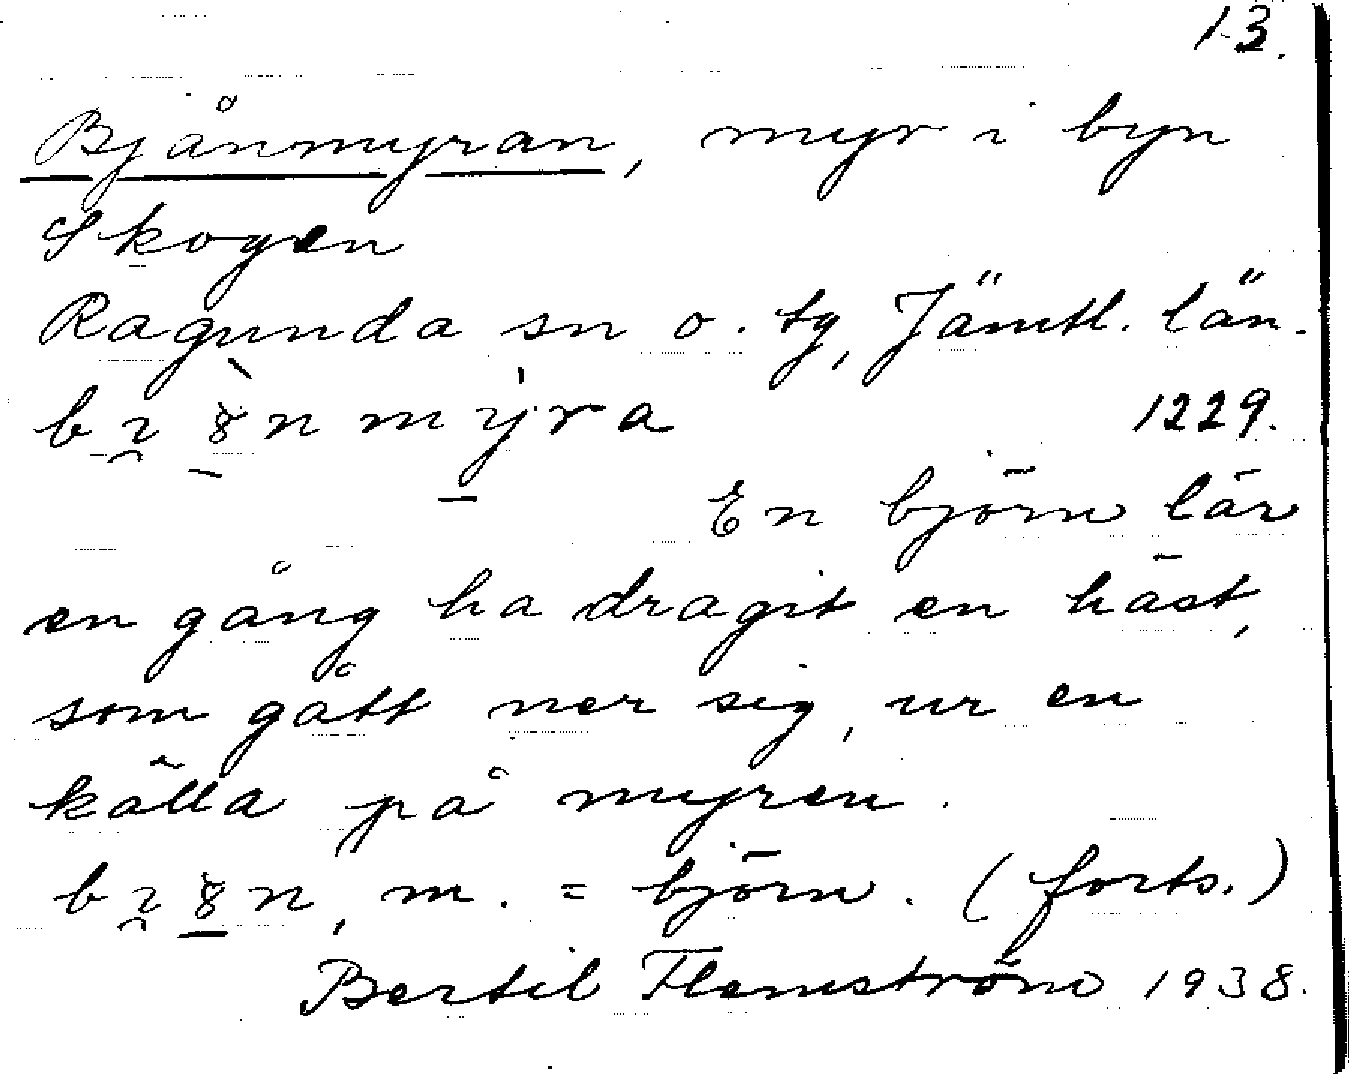 13.
Bjånmyran, myr i byn
Skogen
Ragunda sn o. tg, Jämtl. län.
1229.
En björn lär
en gång ha dragit en häst,
som gått ner sig, ur en
källa på myren.
m. = björn. (forts.)
Bertil Flemström 1938.